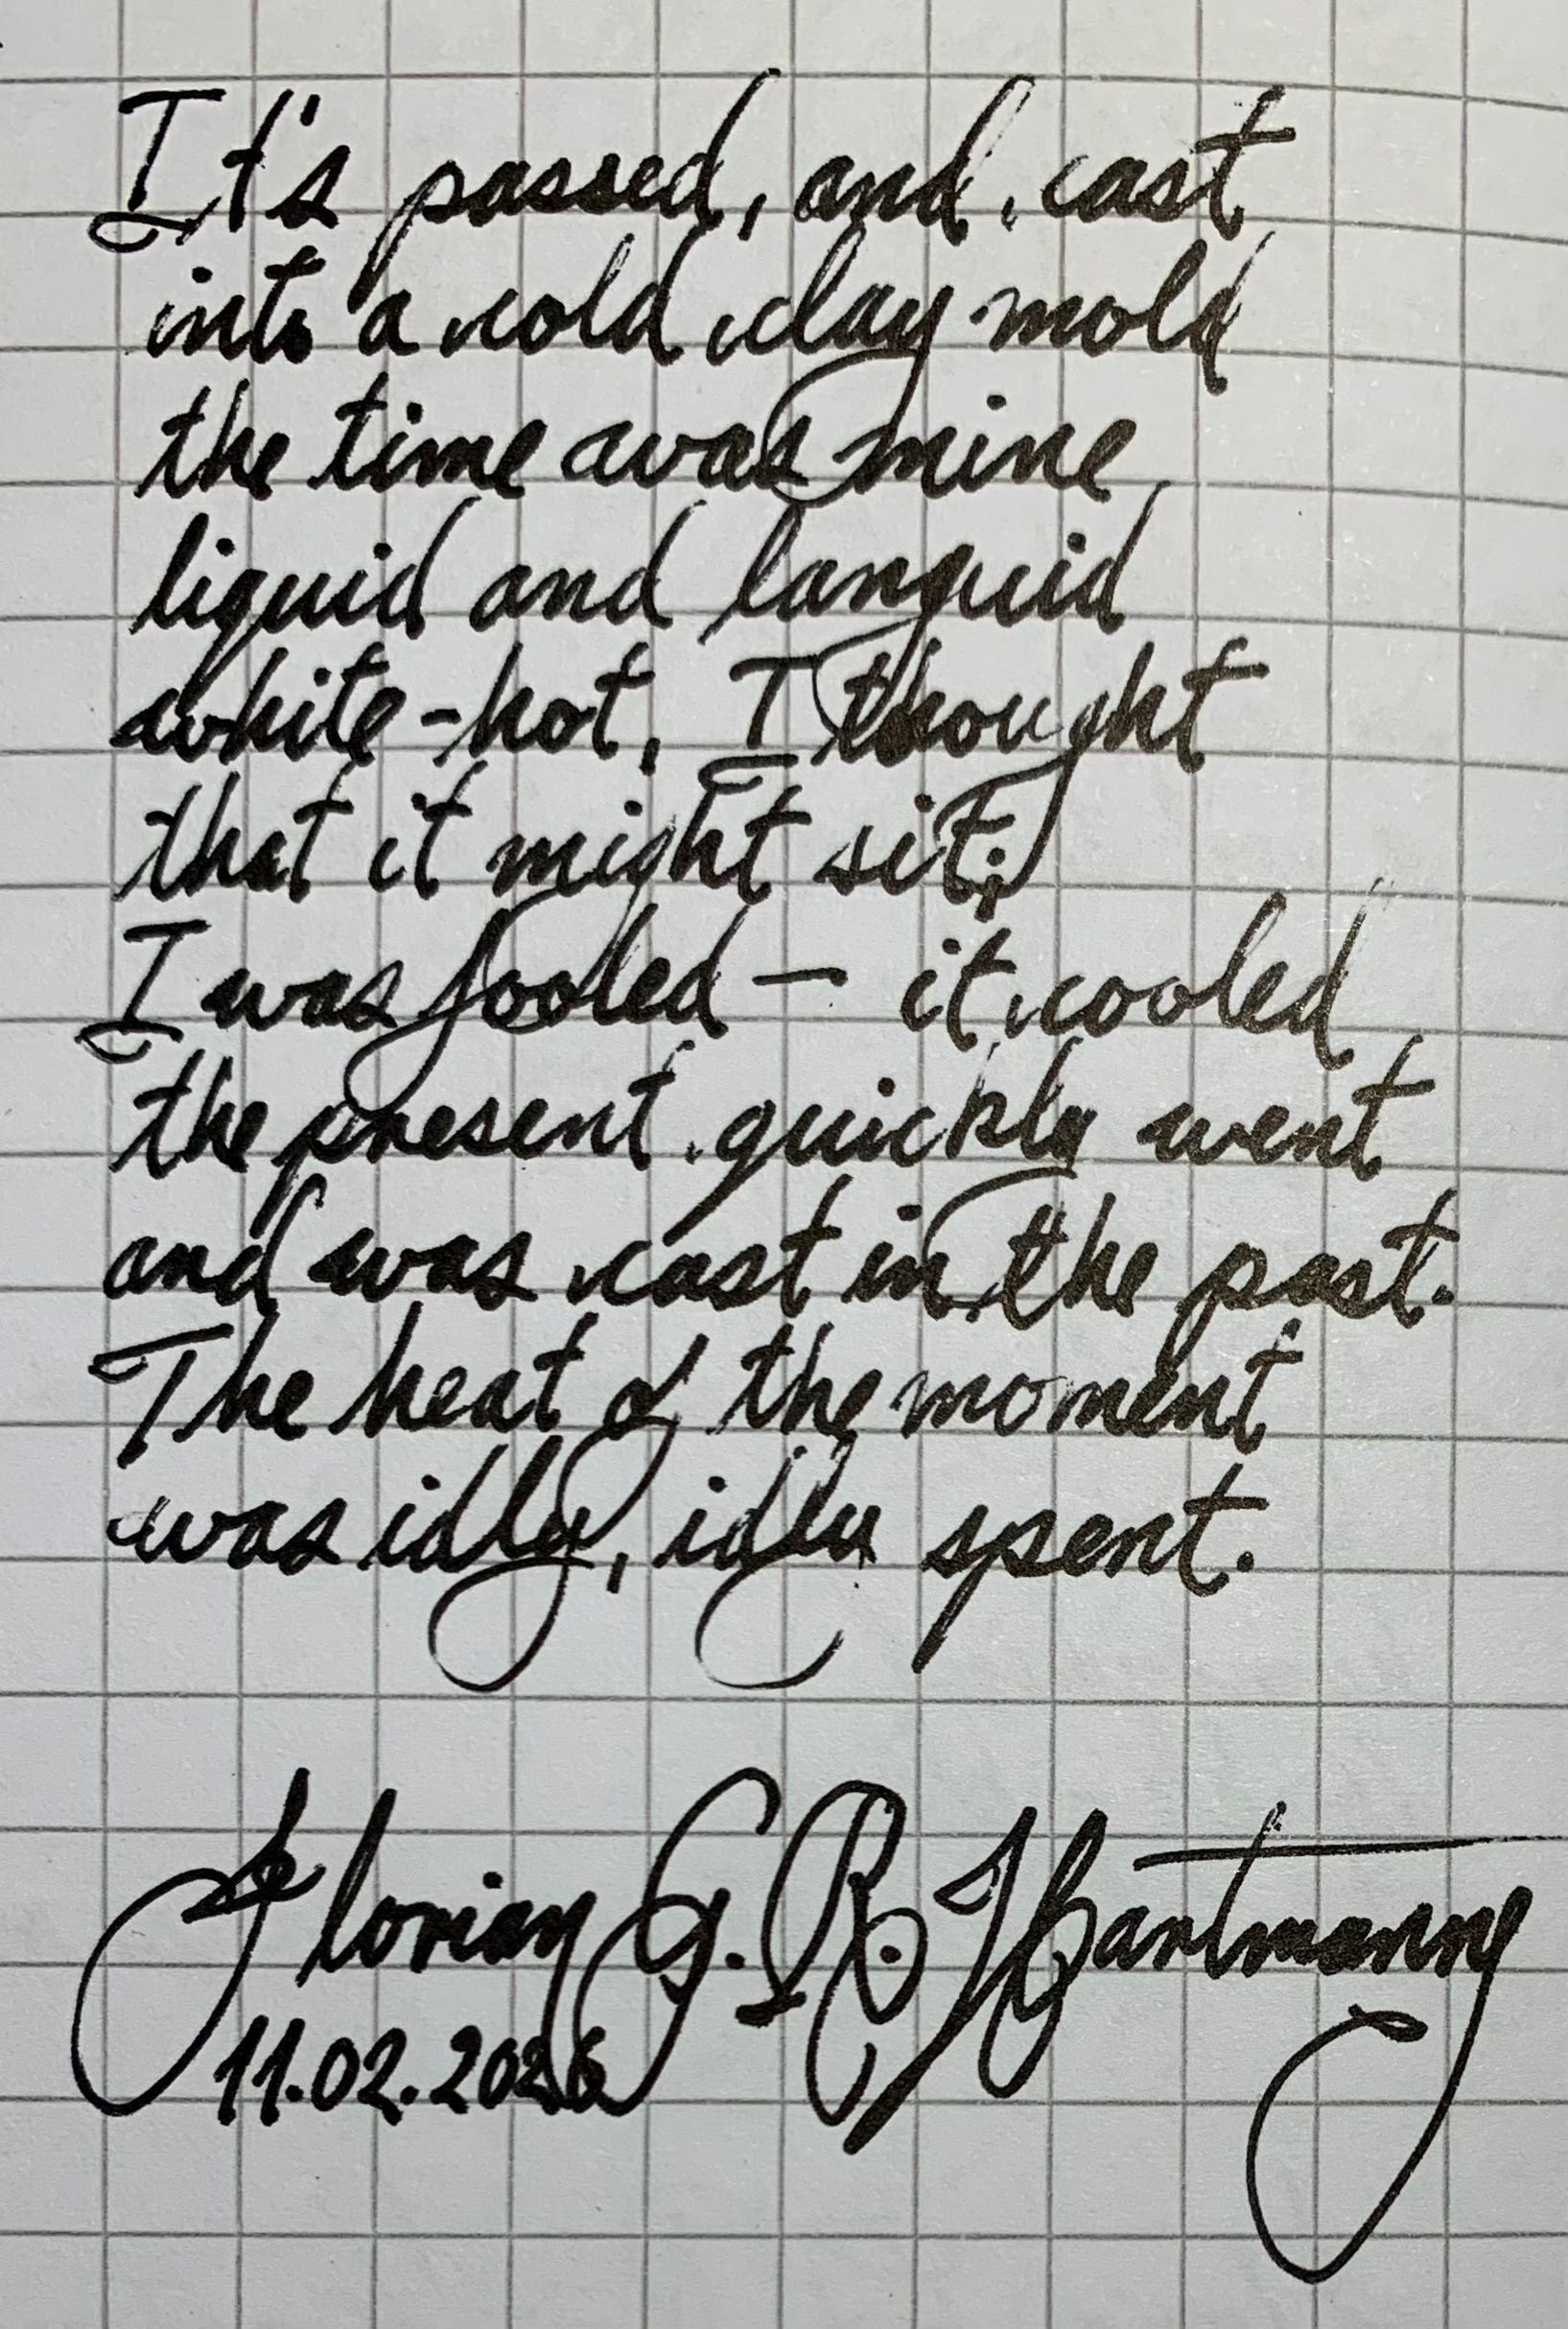 It's passed, and cast
into a cold clay mold
the time was mine
liquid and languid
white-hot, I thought
that it might sit;
I was fooled — it cooled
the present quickly went
and was cast in the past.
The heat of the moment
was idly, idly spent.
Florian G. R. Hartmann
11.02.2026